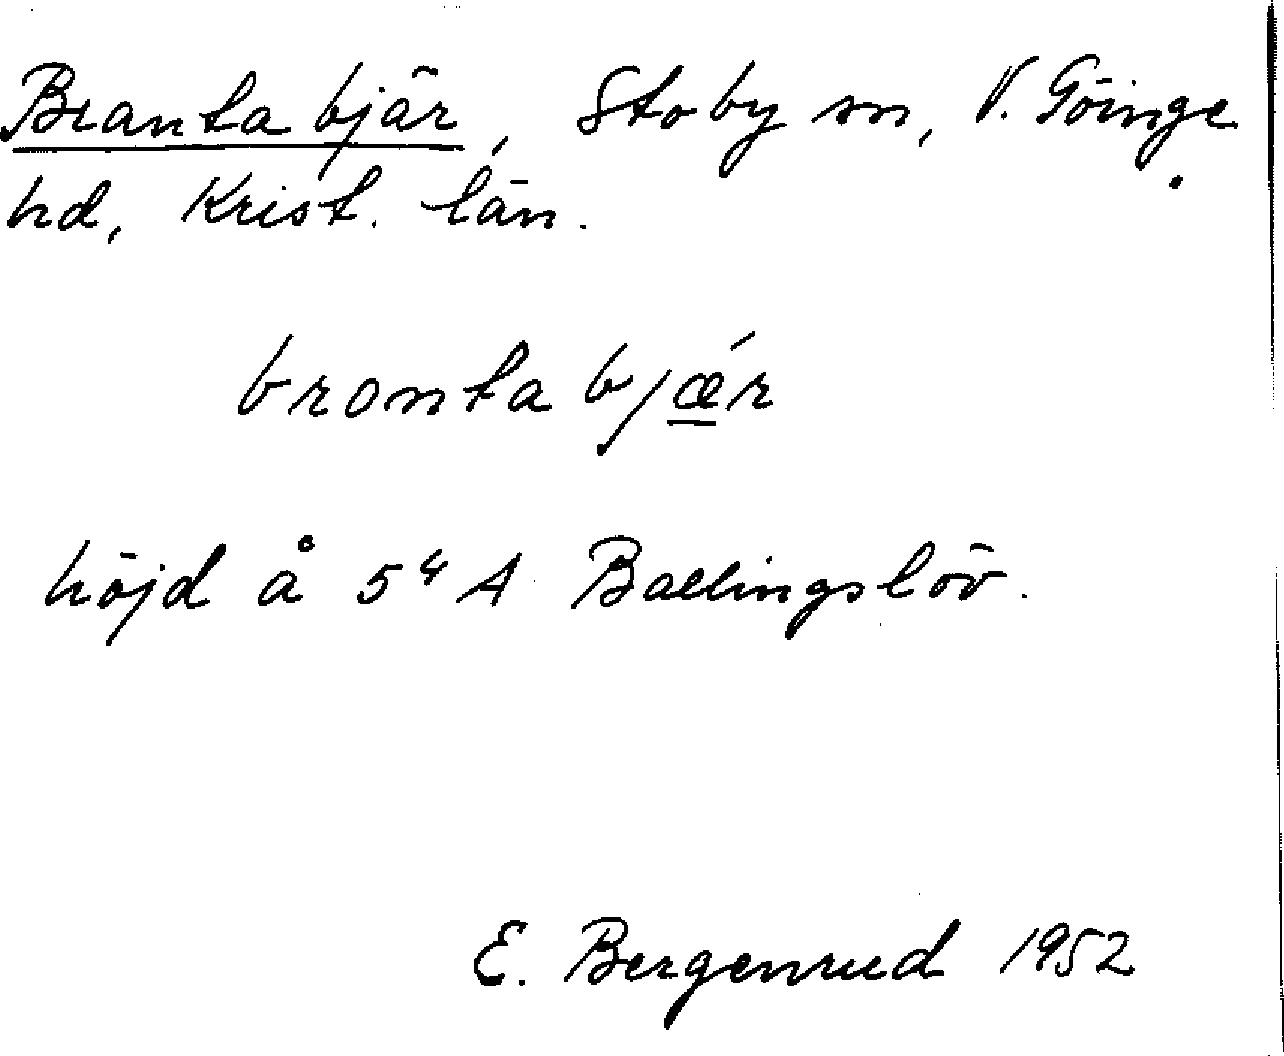 Branta bjär, Stoby sn, V. Göinge
hd, Krist. län.
bronta bjǽr
höjd å 5⁴ A Ballingslöv.
E. Bergenrud 1952